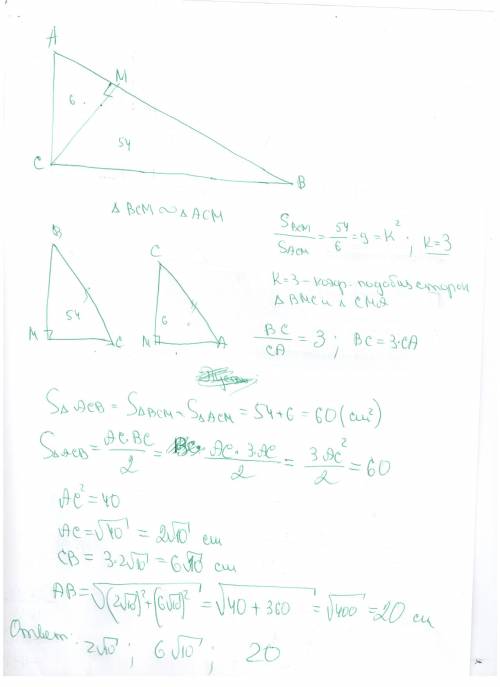 A
M
6
54
C
B
△ BCM ∾ △ ACM
S_BCM / S_ACM = 54/6 = 9 = K² ; K=3
B
54
M
C
C
6
M
A
K=3 – коэф. подобия сторон
△ BMC и △ CMA
BC/CA = 3 ; BC = 3·CA
S△ACB = S△BCM S△ACM = 54+6 = 60 (cm²)
S△ACB = AC·BC/2 = AC·3AC/2 = 3AC²/2 = 60
AC² = 40
AC = √40 = 2√10 cm
CB = 3·2√10 = 6√10 cm
AB = √(2√10)²+(6√10)² = √40+360 = √400 = 20 cm
Ответ: 2√10 ; 6√10 ; 20